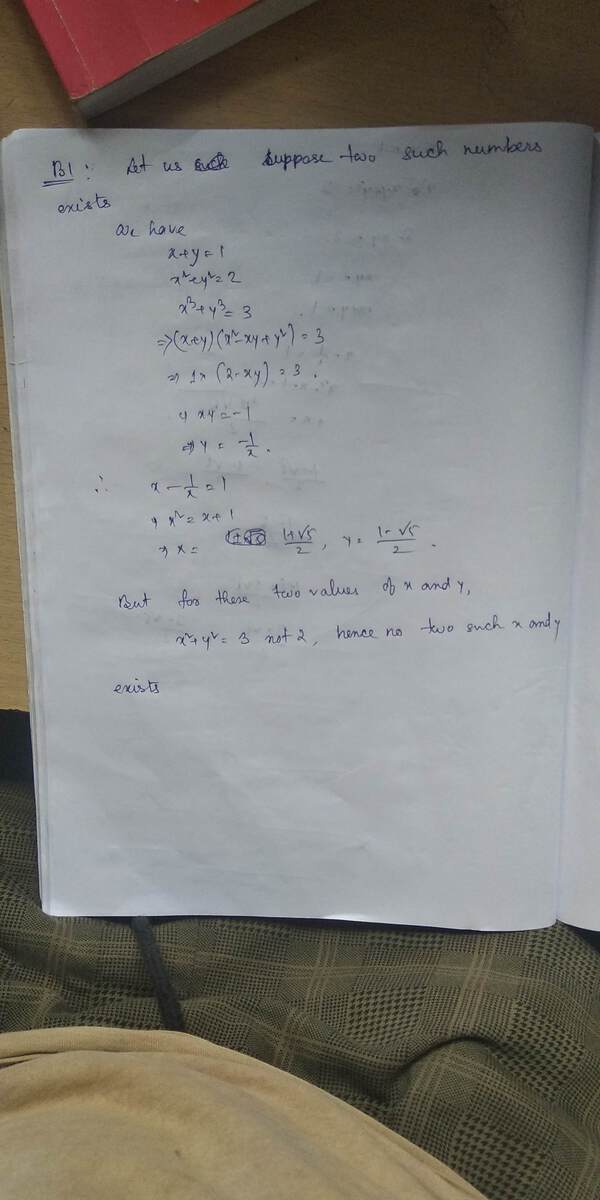 B1: Let us suppose two such numbers
exists
we have
x+y=1
x²+y²=2
x³+y³=3
⇒(x+y)(x²-xy+y²)=3
⇒ 1×(2-xy)=3.
⇒ xy=-1
⇒ y = -1/x.
∴ x - 1/x = 1
⇒ x² = x+1
⇒ x = (1+√5)/2, y = (1-√5)/2.
But for these two values of x and y,
x²+y²=3 not 2, hence no two such x and y
exists